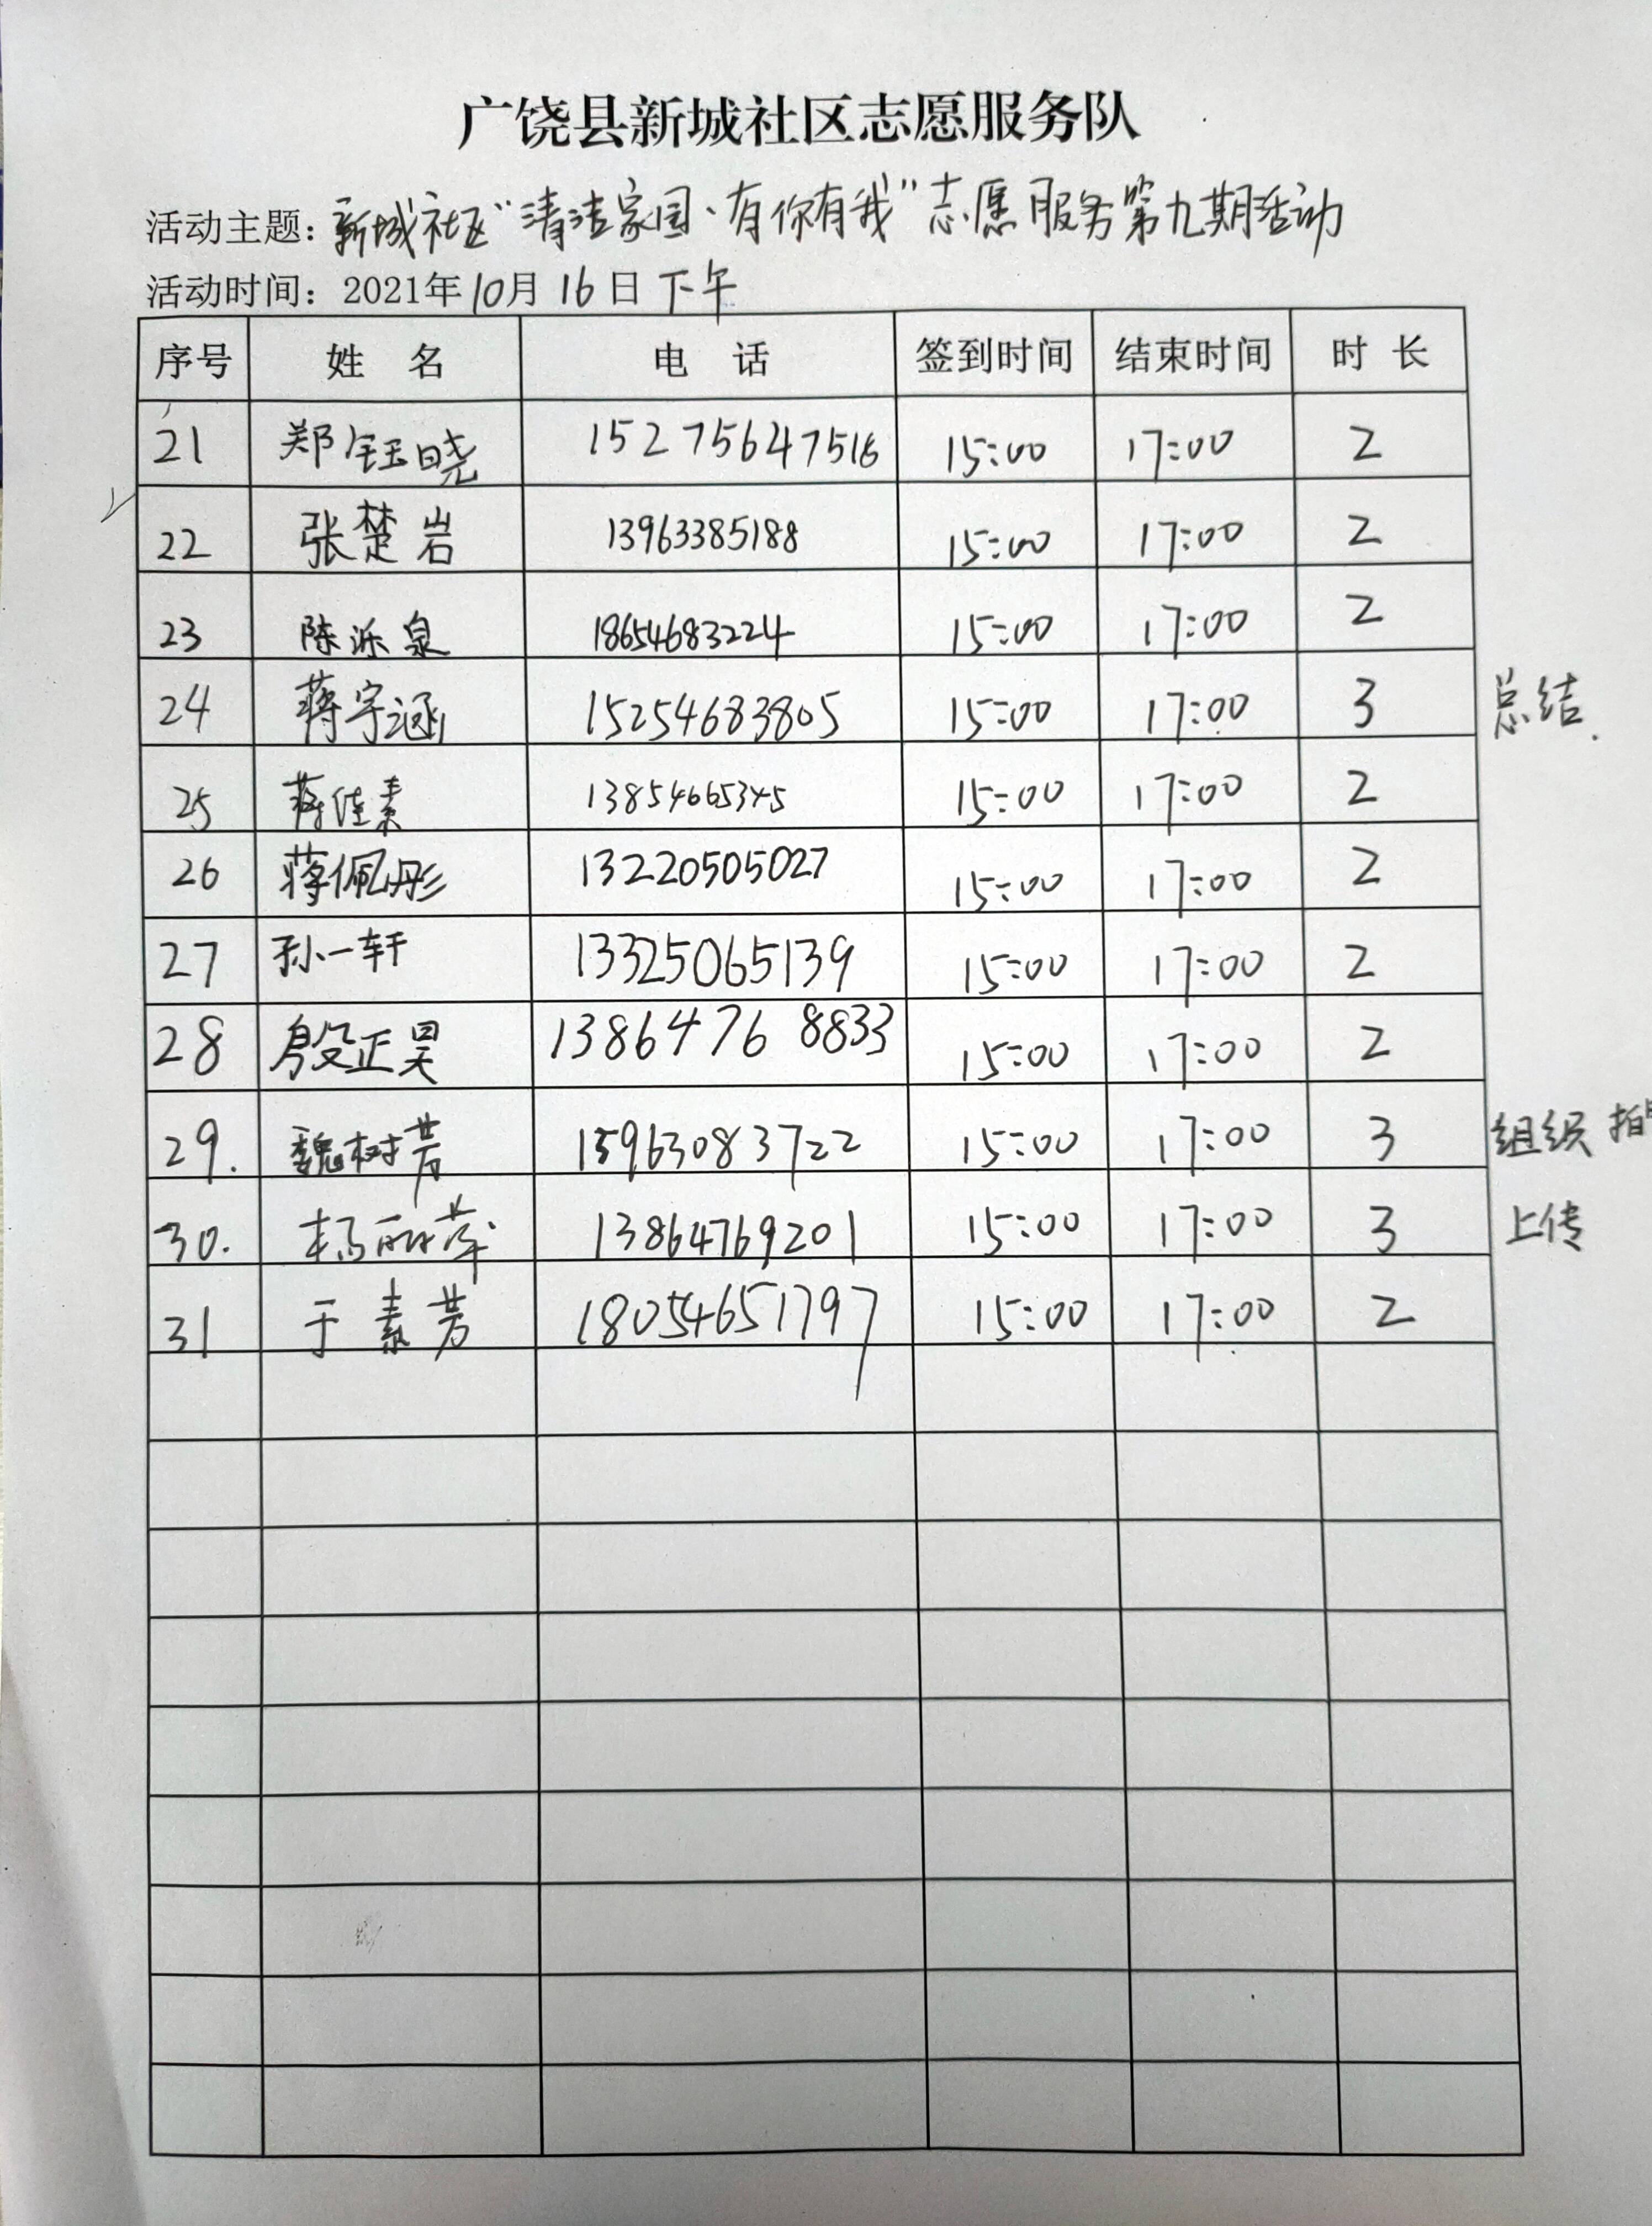 广饶县新城社区志愿服务队
活动主题：新城社区“清洁家园、有你有我”志愿服务第九期活动
活动时间：2021年10月16日下午
序号 姓 名 电 话 签到时间 结束时间 时 长
21 郑钰晓 15275647516 15:00 17:00 2
22 张楚岩 13963385188 15:00 17:00 2
23 陈泺泉 18654683224 15:00 17:00 2
24 蒋宇涵 15254683805 15:00 17:00 3 总结.
25 蒋佳素 13854665345 15:00 17:00 2
26 蒋佩彤 13220505027 15:00 17:00 2
27 孙一轩 13325065139 15:00 17:00 2
28 殷正昊 13864768833 15:00 17:00 2
29. 魏树芳 15963083722 15:00 17:00 3 组织
30. 杨丽萍 13864769201 15:00 17:00 3 上传
31 于素芳 18054651797 15:00 17:00 2